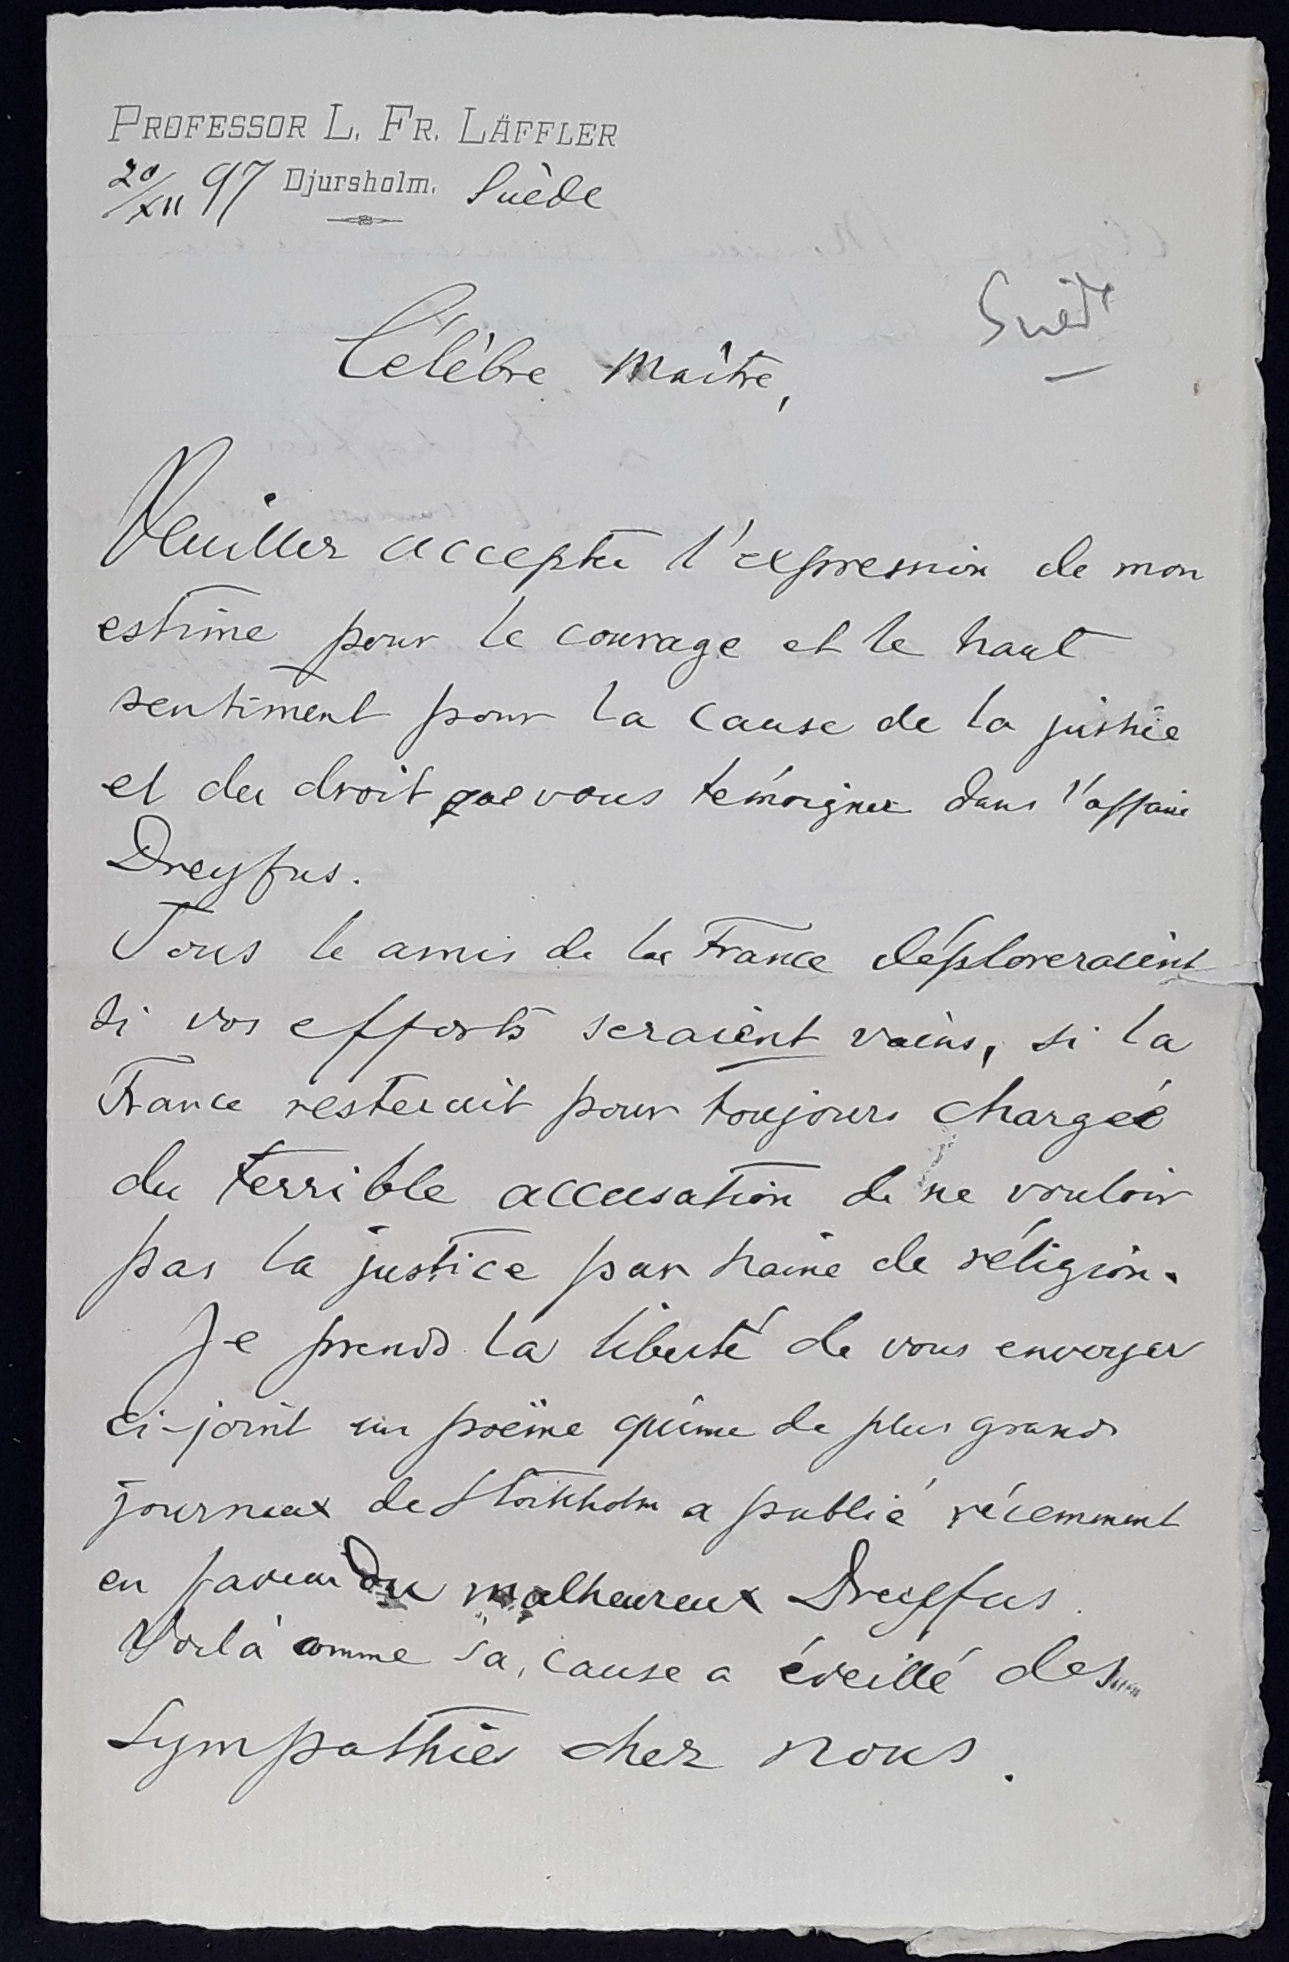 PROFESSOR L. FR. LÄFFLER
20/XII 97 Djursholm. Suède
Suède
Célèbre maître,
Veuillez accepter l'expression de mon
estime pour le courage et le haut
sentiment pour la cause de la justice
et du droit que vous témoignez dans l'affaire
Dreyfus.
Tous le amis de la France déploreraient
si vos efforts seraient vains, si la
France resterait pour toujours chargée
du terrible accusation de ne vouloir
pas la justice par haine de réligion.
Je prends la liberté de vous envoyer
ci-joint un poëme qu'une de plus grands
journaux de Stockholm a publié récemment
en faveur du malheureux Dreyfus.
Voilà comme sa cause a éveillé des
sympathies chez nous.